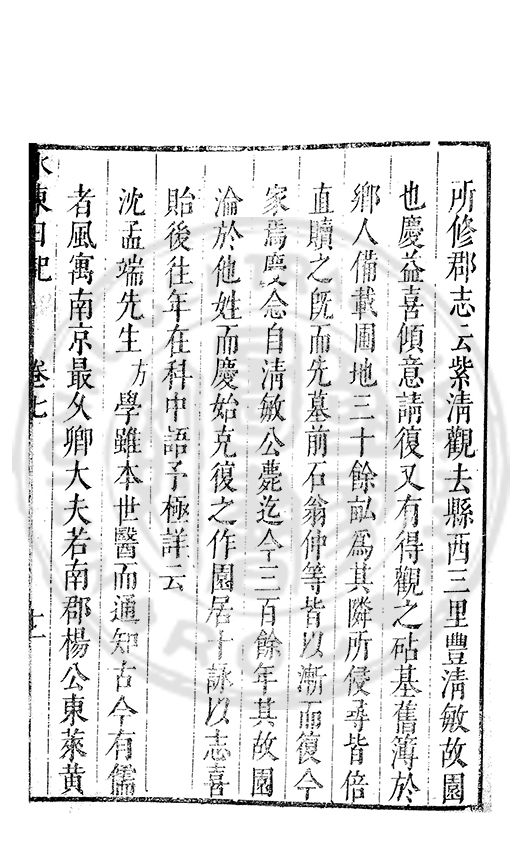 所修郡志云紫清觀去縣西三里豐清敏故園
也慶益喜傾意請復又有得觀之砧基舊簿於
鄉人備載園地三十餘畝為其隣所侵尋皆倍
直贖之既而先墓前石翁仲等皆以漸而復今
家焉慶念自清敏公薨迄今三百餘年其故園
淪於他姓而慶始克復之作園居十詠以志喜
貽後往年在科中語予極詳云
沈孟端先生方學雖本世醫而通知古今有儒
者風寓南京最久卿大夫若南郡楊公東萊黃
水東日記 卷七 十一